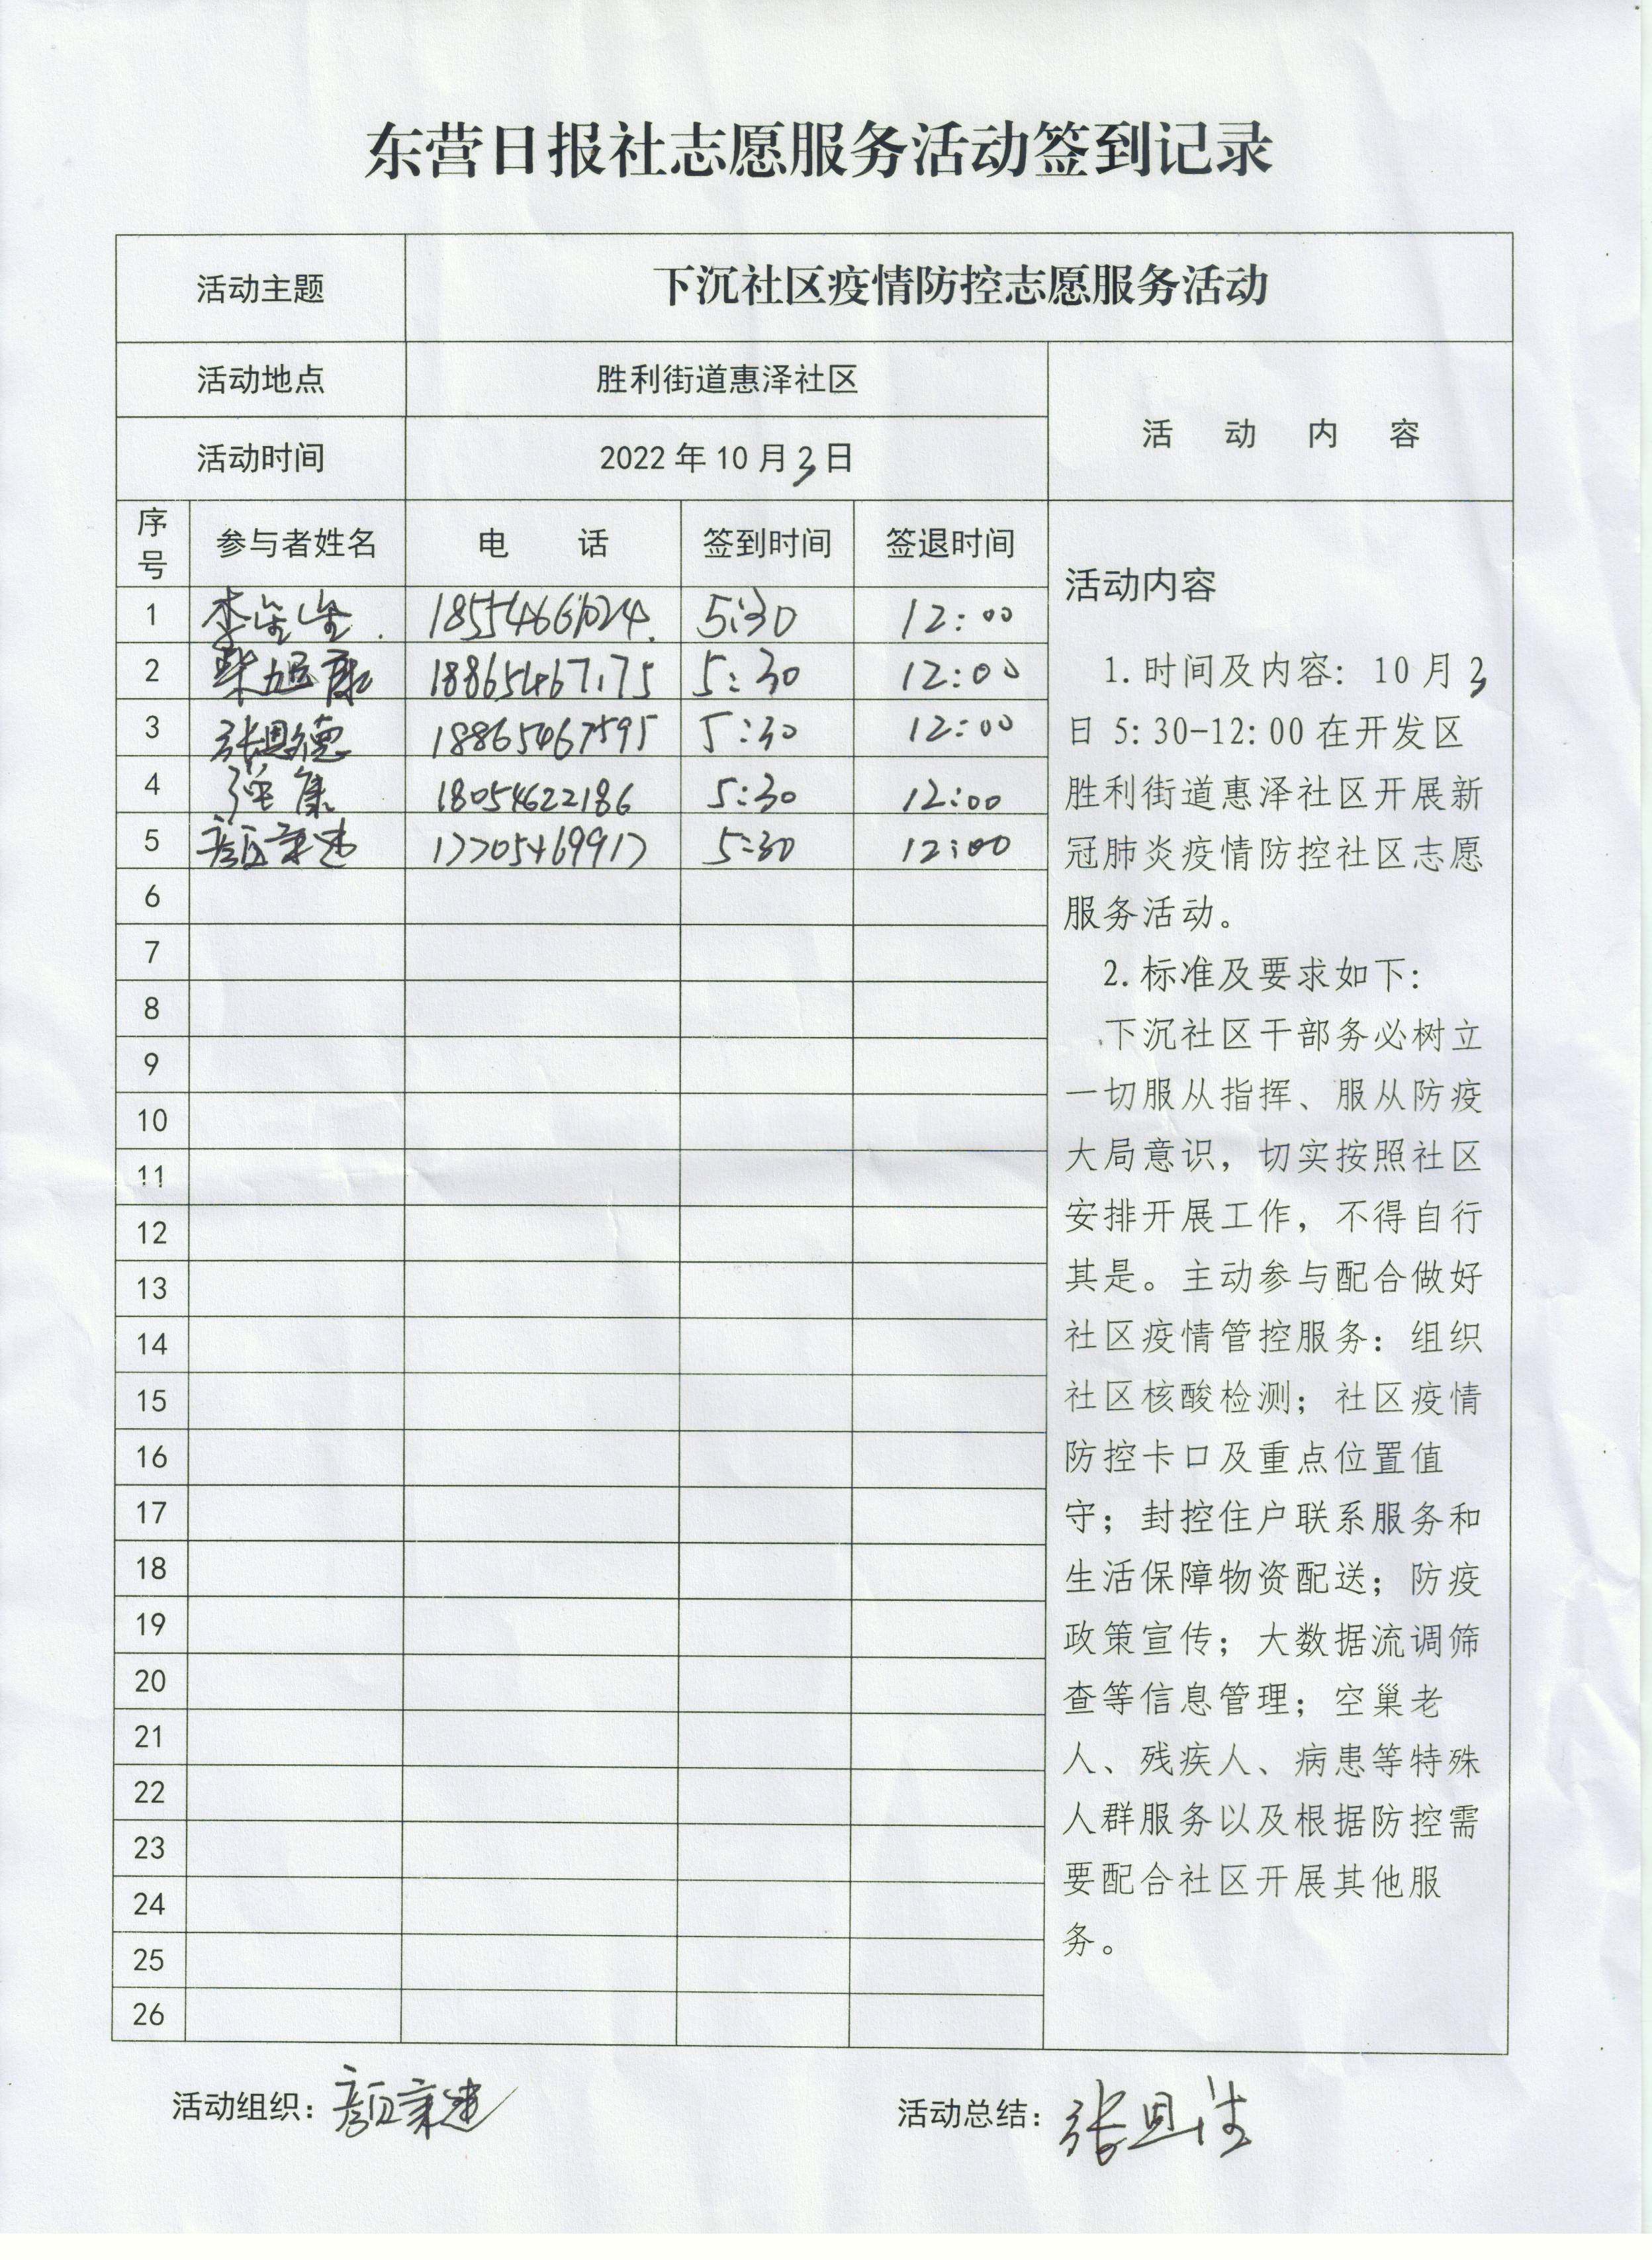 东营日报社志愿服务活动签到记录
活动主题 下沉社区疫情防控志愿服务活动
活动地点 胜利街道惠泽社区
活动时间 2022年10月3日
活 动 内 容
序号 参与者姓名 电 话 签到时间 签退时间
1 李 5:30 12:00
2 柴旭康 5:30 12:00
3 张恩德 18865467595 5:30 12:00
4 康 18054622186 5:30 12:00
5 颜秉建 17705469917 5:30 12:00
6
7
8
9
10
11
12
13
14
15
16
17
18
19
20
21
22
23
24
25
26
活动内容
1.时间及内容：10月3
日5:30-12:00在开发区
胜利街道惠泽社区开展新
冠肺炎疫情防控社区志愿
服务活动。
2.标准及要求如下：
下沉社区干部务必树立
一切服从指挥、服从防疫
大局意识，切实按照社区
安排开展工作，不得自行
其是。主动参与配合做好
社区疫情管控服务：组织
社区核酸检测；社区疫情
防控卡口及重点位置值
守；封控住户联系服务和
生活保障物资配送；防疫
政策宣传；大数据流调筛
查等信息管理；空巢老
人、残疾人、病患等特殊
人群服务以及根据防控需
要配合社区开展其他服
务。
活动组织：颜秉建 活动总结：张恩